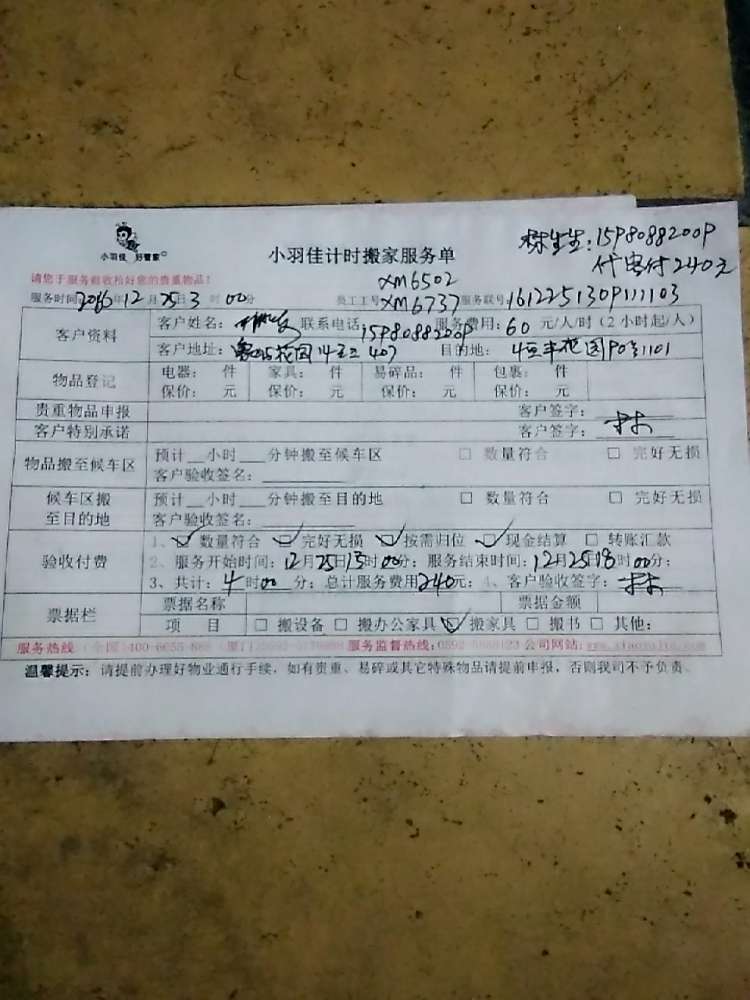 林生生:15980882009
代客付240元
小羽佳 好管家
小羽佳计时搬家服务单
请您于服务前收拾好您的贵重物品!
XM6502
服务时间:2016年12月25日3时00分 员工工号XM6737 服务联号:1612251309111103
客户资料 客户姓名: 联系电话:15980882009 服务费用:60元/人/时(2小时起/人)
客户地址: 花园14 407 目的地: 花园 1101
物品登记 电器: 件 家具: 件 易碎品: 件 包裹: 件
保价: 元 保价: 元 保价: 元 保价: 元
贵重物品申报 客户签字:
客户特别承诺 客户签字:林
物品搬至候车区 预计__小时___分钟搬至候车区 □ 数量符合 □ 完好无损
客户验收签名:
候车区搬至目的地 预计__小时___分钟搬至目的地 □ 数量符合 □ 完好无损
客户验收签名:
验收付费 1、☑ 数量符合 ☑ 完好无损 ☑ 按需归位 ☑ 现金结算 □ 转账汇款
2、服务开始时间:12月25日13时00分;服务结束时间:12月25日18时00分;
3、共计:4时00分;总计服务费用240元;4、客户验收签字:林
票据栏 票据名称 票据金额
项目 □ 搬设备 □ 搬办公家具 ☑ 搬家具 □ 搬书 □ 其他:
服务热线 (全国)400-6655-888 服务监督热线:0592- 公司网站:
温馨提示:请提前办理好物业通行手续,如有贵重、易碎或其它特殊物品请提前申报,否则我司不予负责。